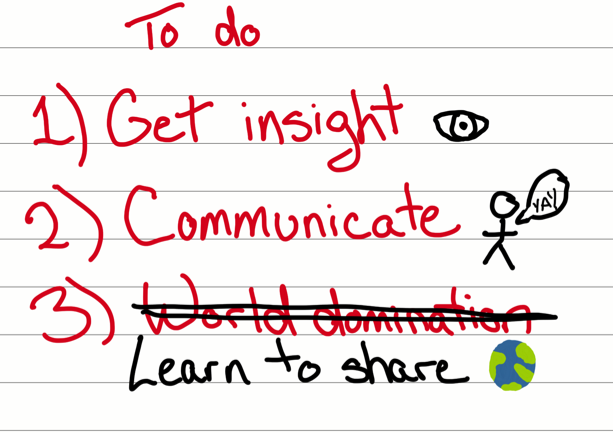 To do
1) Get insight
2) Communicate
YAY
3) World domination
Learn to share